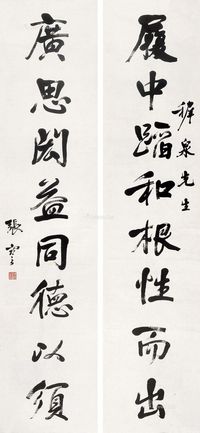 履中蹈和根性而出
稺泉先生
廣思閎益同德以須
張謇